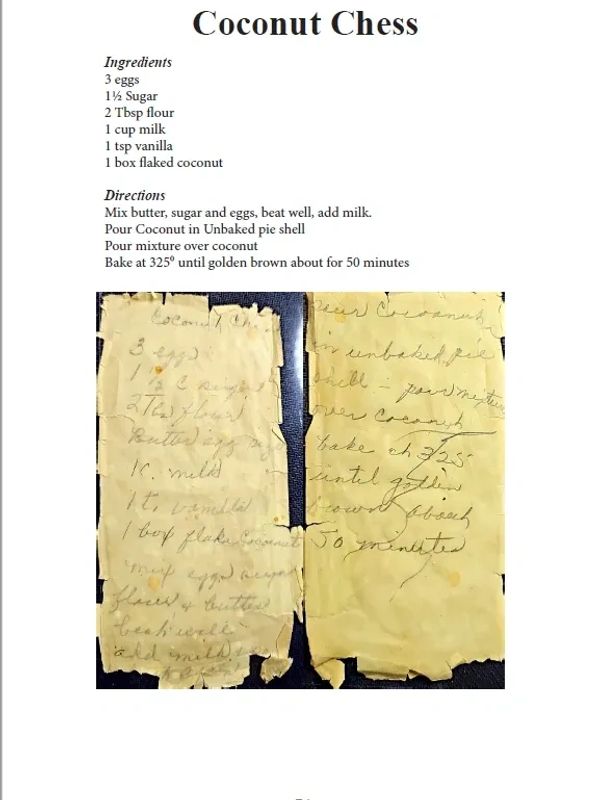 Coconut Chess
Ingredients
3 eggs
1½ Sugar
2 Tbsp flour
1 cup milk
1 tsp vanilla
1 box flaked coconut
Directions
Mix butter, sugar and eggs, beat well, add milk.
Pour Coconut in Unbaked pie shell
Pour mixture over coconut
Bake at 325⁰ until golden brown about for 50 minutes
Coconut Che
3 eggs
1 ½ C sugar
2 Tbs flour
Butter egg
1 c. milk
1 t. vanilla
1 box flake Coconut
mix eggs sugar
flour & butter
beat well
add milk
pour Cocoanut
in unbaked pie
shell - pour mixture
over Cocoanut
bake at 325
until golden
brown about
50 minutes